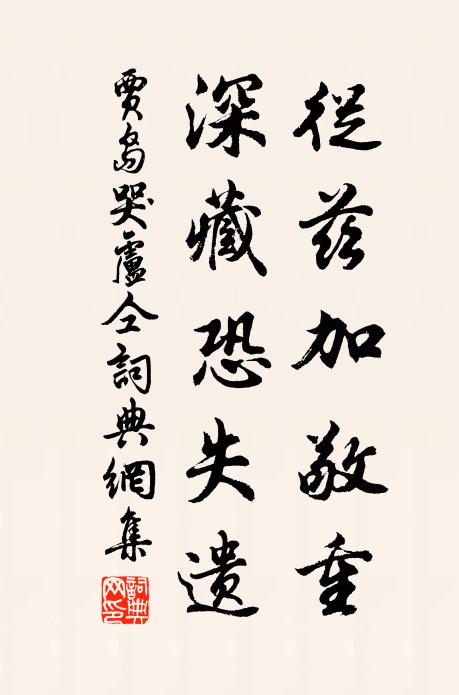 從茲加敬重
深藏恐失遺
賈島哭盧仝詞典網集
詞典網印